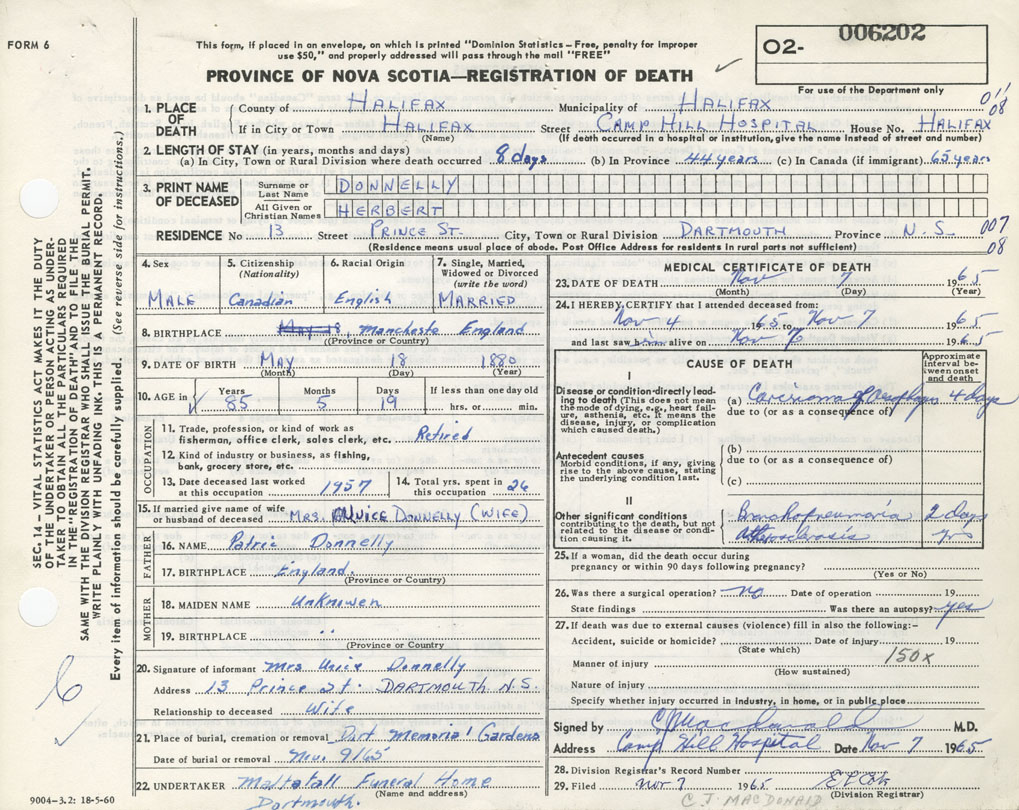 FORM 6
This form, if placed in an envelope, on which is printed "Dominion Statistics – Free, penalty for improper
use $50," and properly addressed will pass through the mail "FREE"
PROVINCE OF NOVA SCOTIA—REGISTRATION OF DEATH ✓
O2- 006202
For use of the Department only
011
08
1. PLACE OF DEATH County of HALIFAX Municipality of HALIFAX
If in City or Town HALIFAX Street CAMP HILL HOSPITAL House No. HALIFAX
(Name) (If death occurred in a hospital or institution, give the name instead of street and number)
2. LENGTH OF STAY (in years, months and days)
(a) In City, Town or Rural Division where death occurred 8 days (b) In Province 44 years (c) In Canada (if immigrant) 65 years
3. PRINT NAME OF DECEASED Surname or Last Name DONNELLY
All Given or Christian Names HERBERT
RESIDENCE No 13 Street PRINCE ST. City, Town or Rural Division DARTMOUTH Province N.S.
007
08
(Residence means usual place of abode. Post Office Address for residents in rural parts not sufficient)
4. Sex MALE
5. Citizenship (Nationality) Canadian
6. Racial Origin English
7. Single, Married, Widowed or Divorced (write the word) MARRIED
8. BIRTHPLACE May 18 Mancheste England
(Province or Country)
9. DATE OF BIRTH MAY 18 1880
(Month) (Day) (Year)
10. AGE in ✓ Years 85 Months 5 Days 19 If less than one day old hrs. or min.
OCCUPATION
11. Trade, profession, or kind of work as
fisherman, office clerk, sales clerk, etc. Retired
12. Kind of industry or business, as fishing,
bank, grocery store, etc.
13. Date deceased last worked at this occupation 1957 14. Total yrs. spent in this occupation 26
15. If married give name of wife
or husband of deceased MRS. UNICE DONNELLY (WIFE)
FATHER
16. NAME Patric Donnelly
17. BIRTHPLACE England
(Province or Country)
MOTHER
18. MAIDEN NAME Unknowen
19. BIRTHPLACE ..
(Province or Country)
20. Signature of informant Mrs Unice Donnelly
Address 13 Prince st. DARTMOUTH N.S.
Relationship to deceased Wife
21. Place of burial, cremation or removal Dart Memorial Gardens
Date of burial or removal Nov. 9/65
22. UNDERTAKER Funeral Home
(Name and address)
Dartmouth.
MEDICAL CERTIFICATE OF DEATH
23. DATE OF DEATH Nov 7 1965
(Month) (Day) (Year)
24. I HEREBY CERTIFY that I attended deceased from:
Nov 4 1965 to Nov 7 1965
and last saw him alive on Nov 1965
CAUSE OF DEATH
Approximate interval between onset and death
I
Disease or condition directly leading
to death (This does not mean
the mode of dying, e.g., heart failure,
asthenia, etc. It means the
disease, injury, or complication
which caused death.)
(a) 4 days
due to (or as a consequence of)
Antecedent causes
Morbid conditions, if any, giving
rise to the above cause, stating
the underlying condition last.
(b)
due to (or as a consequence of)
(c)
II
Other significant conditions
contributing to the death, but not
related to the disease or condition
causing it.
Bronchopneumonia 2 days
25. If a woman, did the death occur during
pregnancy or within 90 days following pregnancy?
(Yes or No)
26. Was there a surgical operation? no Date of operation 19
State findings Was there an autopsy? yes
27. If death was due to external causes (violence) fill in also the following:-
Accident, suicide or homicide? Date of injury 19
(State which)
150x
Manner of injury
(How sustained)
Nature of injury
Specify whether injury occurred in Industry, in home, or in public place
Signed by M.D.
Address Camp Hill Hospital Date Nov 7 1965
28. Division Registrar's Record Number
29. Filed Nov 7 1965
(Division Registrar)
C J MACDONALD
SEC. 14 – VITAL STATISTICS ACT MAKES IT THE DUTY
OF THE UNDERTAKER OR PERSON ACTING AS UNDERTAKER
TO OBTAIN ALL THE PARTICULARS REQUIRED
IN THE "REGISTRATION OF DEATH" AND TO FILE THE
SAME WITH THE DIVISION REGISTRAR WHO SHALL ISSUE THE BURIAL PERMIT.
WRITE PLAINLY WITH UNFADING INK. THIS IS A PERMANENT RECORD.
Every item of information should be carefully supplied. (See reverse side for instructions.)
6
9004-3.2: 18-5-60